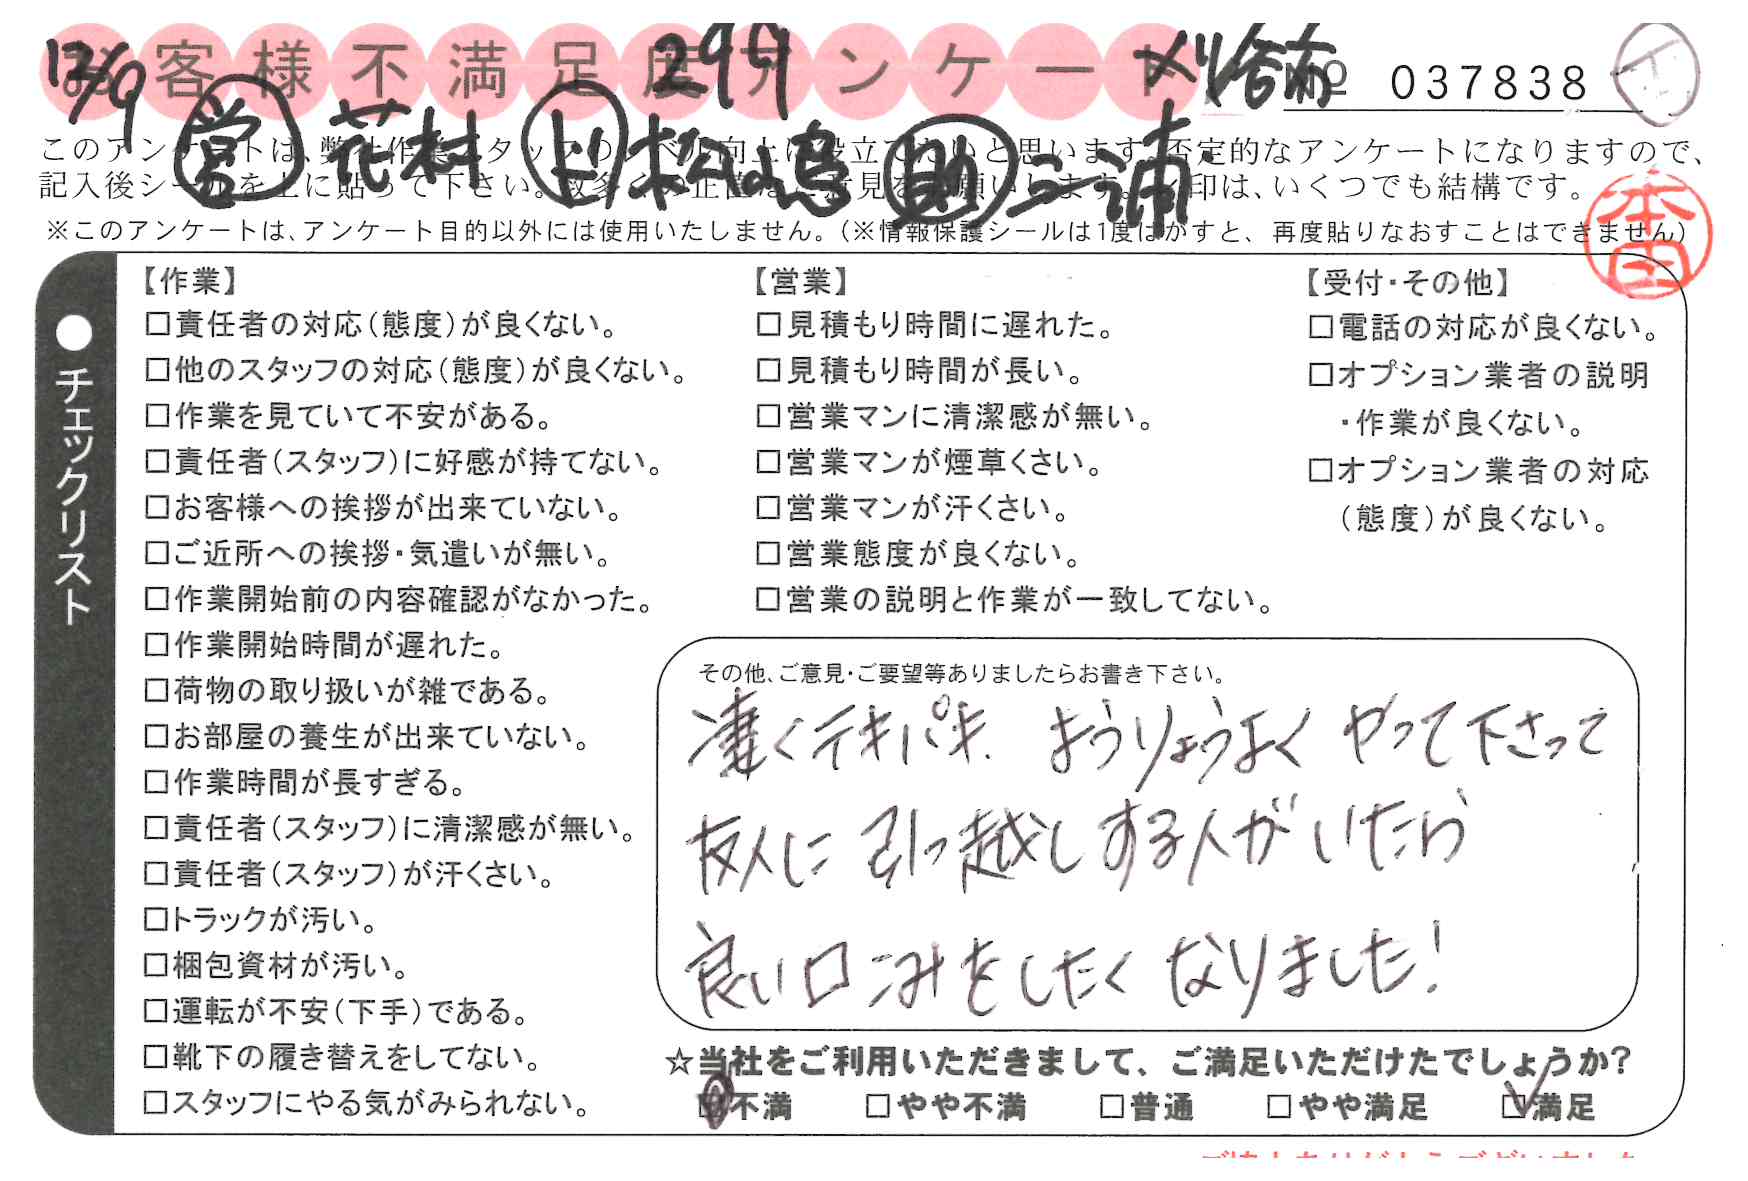 お客様不満足度アンケート
12/9 299 刈谷南 No 037838
営 花村 ド 松嶋 助 三浦
このアンケートは、弊社作業スタッフのレベル向上に役立てたいと思います。否定的なアンケートになりますので、
記入後シールを上に貼って下さい。数多くの正直なご意見をお願いします。レ印は、いくつでも結構です。
※このアンケートは、アンケート目的以外には使用いたしません。(※情報保護シールは1度はがすと、再度貼りなおすことはできません)
本田
●チェックリスト
【作業】
□責任者の対応(態度)が良くない。
□他のスタッフの対応(態度)が良くない。
□作業を見ていて不安がある。
□責任者(スタッフ)に好感が持てない。
□お客様への挨拶が出来ていない。
□ご近所への挨拶・気遣いが無い。
□作業開始前の内容確認がなかった。
□作業開始時間が遅れた。
□荷物の取り扱いが雑である。
□お部屋の養生が出来ていない。
□作業時間が長すぎる。
□責任者(スタッフ)に清潔感が無い。
□責任者(スタッフ)が汗くさい。
□トラックが汚い。
□梱包資材が汚い。
□運転が不安(下手)である。
□靴下の履き替えをしてない。
□スタッフにやる気がみられない。
【営業】
□見積もり時間に遅れた。
□見積もり時間が長い。
□営業マンに清潔感が無い。
□営業マンが煙草くさい。
□営業マンが汗くさい。
□営業態度が良くない。
□営業の説明と作業が一致してない。
【受付・その他】
□電話の対応が良くない。
□オプション業者の説明
・作業が良くない。
□オプション業者の対応
(態度)が良くない。
その他、ご意見・ご要望等ありましたらお書き下さい。
凄くテキパキ、ようりょうよくやって下さって
友人に引っ越しする人がいたら
良い口こみをしたくなりました!
☆当社をご利用いただきまして、ご満足いただけたでしょうか?
□不満 □やや不満 □普通 □やや満足 ☑満足